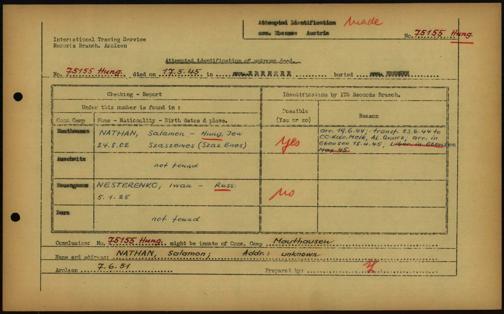 Attempted Identification made
Ebensee Austria
No. 75155 Hung.
International Tracing Service
Records Branch, Arolsen
Attempted identification of unknown dead.
No. 75155 Hung. died on 17.5.45 in buried
Checking - Report
Identifications by ITS Records Branch.
Under this number is found in:
Possible (Yes or no)
Reason
Conc. Camp Name - Nationality - Birth dates & place.
Mauthausen NATHAN, Salamon - Hung. Jew
24.8.02 Szaszenes (Szaz Enes)
Yes
arr. 19.6.44; transf. 23.6.44 to
CC-Kdo. Melk, Al. Quarz, arr. in
Ebensee 15.4.45,
Auschwitz
not found
NESTERENKO, Iwan - Russ.
5.1.25
no
not found
Conclusion: No. 75155 Hung. might be inmate of Conc. Camp Mauthausen
Name and address: NATHAN, Salamon; Addr.: unknown
Arolsen 7.6.51 Prepared by: